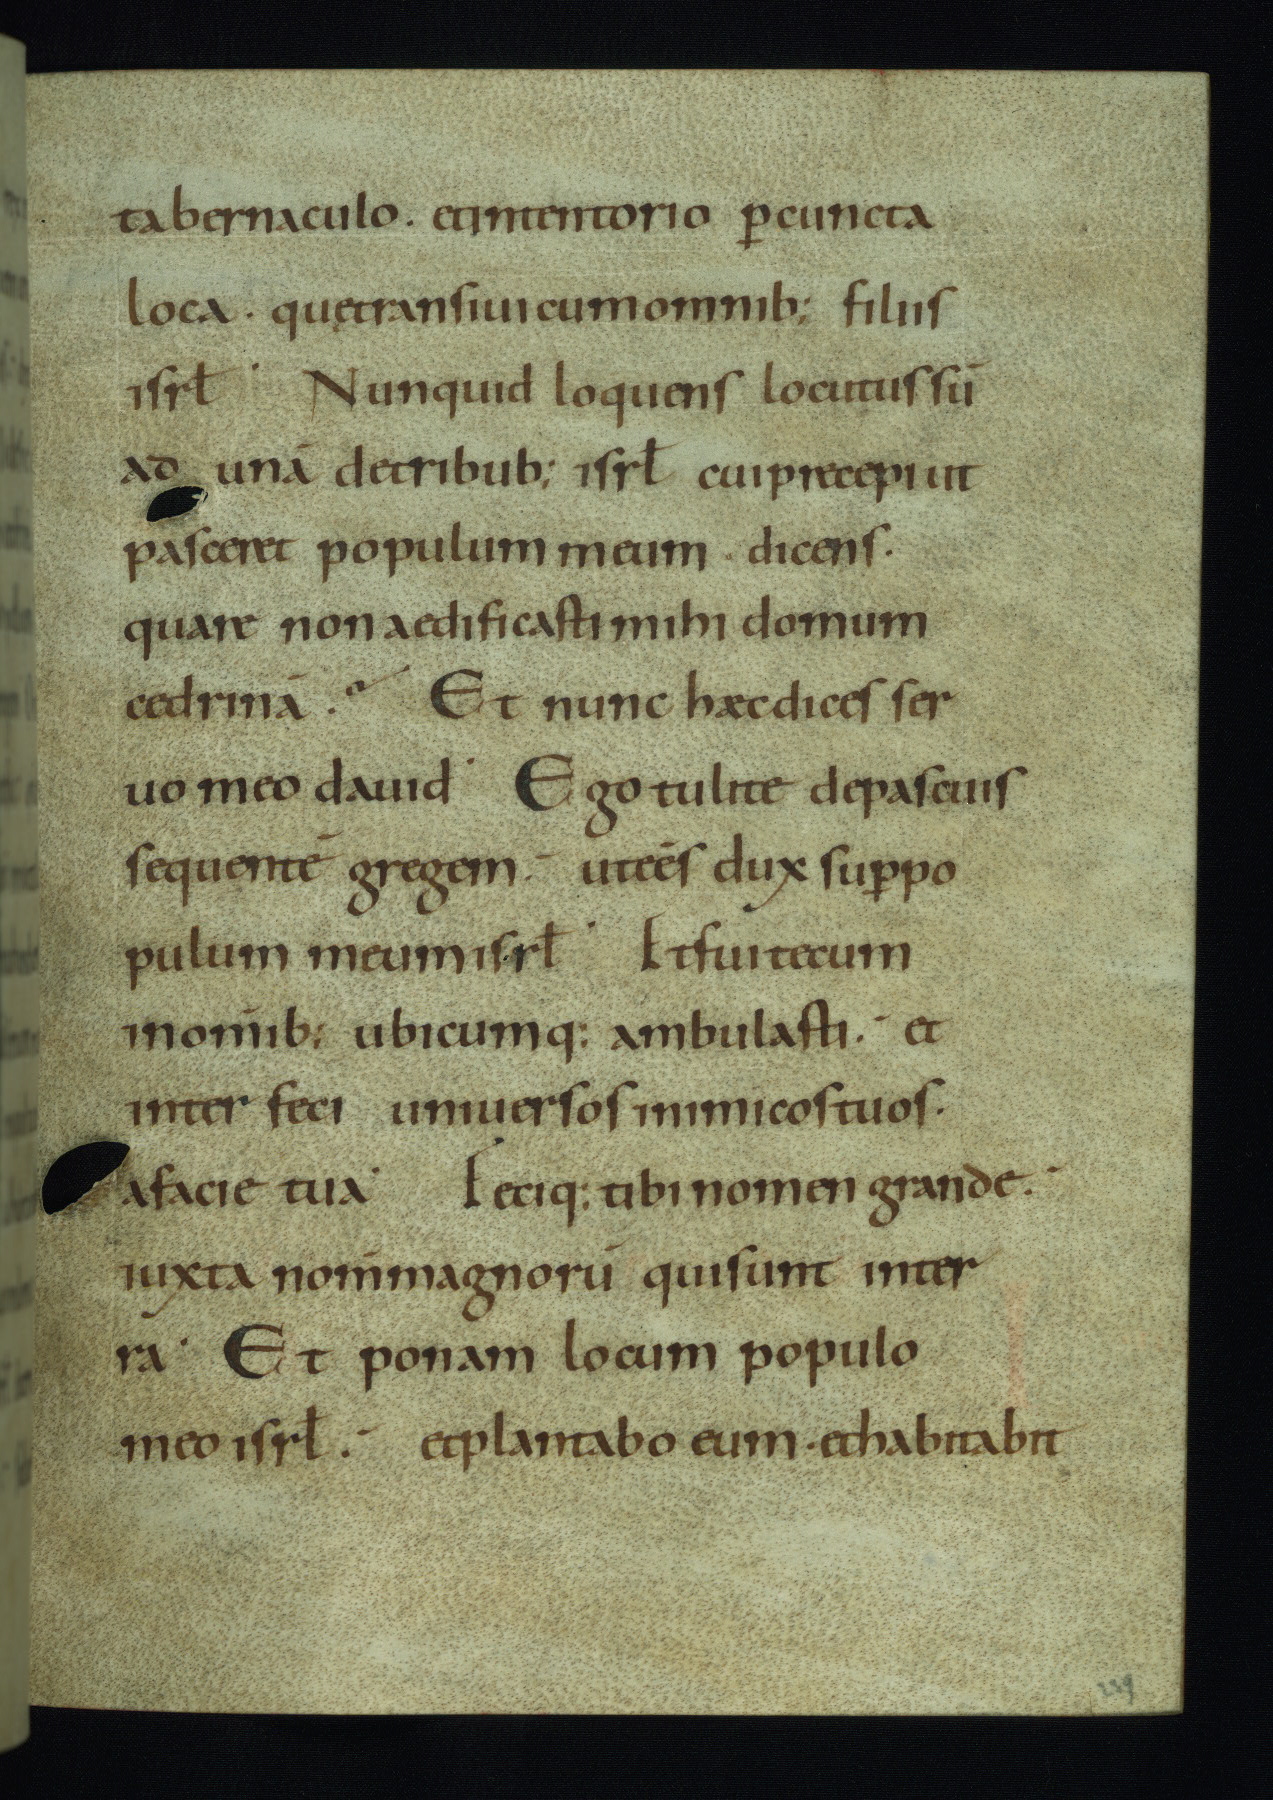 tabernaculo. etintentorio ꝑcuncta
loca. quętransiuicumomnib; filiis
isrł. Nunquid loquens locutussū
ad unā detribub; isrł cuiprecepiut
pasceret populum meum. dicens.
quare non aedificasti mihi domum
cedrinā. Et nunc hæcdices ser
uo meo dauid. Ego tulite depascuis
sequentē gregem. uteēs dux suꝑpo
pulum meum isrł. Etfuitecum
inomīb; ubicumq; ambulasti. et
inter feci uniuersos inimicostuos.
afacie tua. Feciq; tibi nomen grande.
iuxta nom̄magnorū quisunt inter
ra. Et ponam locum populo
meo isrł. etplantabo eum. ethabitabit
229